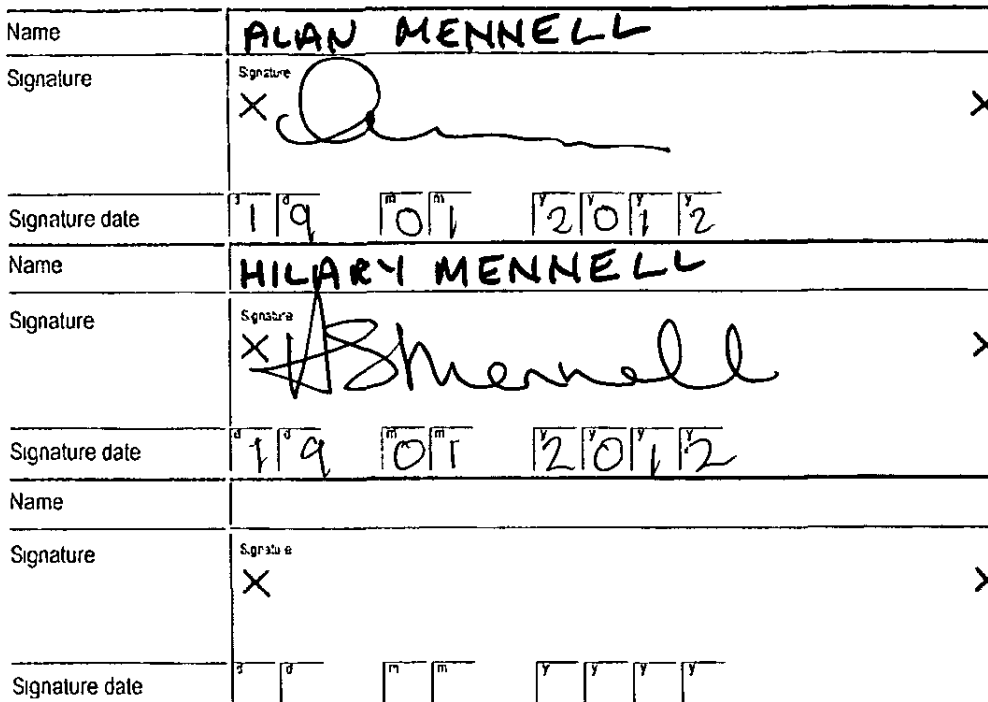 Name ALAN MENNELL
Signature Signature
X X
Signature date d 1 d 9 m 0 m 1 y 2 y 0 y 1 y 2
Name HILARY MENNELL
Signature Signature
X HSMennell X
Signature date d 1 d 9 m 0 m 1 y 2 y 0 y 1 y 2
Name
Signature Signature
X X
Signature date d d m m y y y y